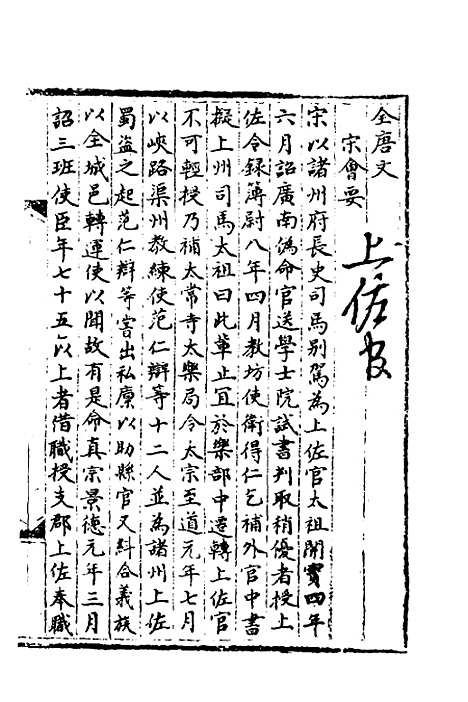 全唐文
宋會要
上佐官
宋以諸州府長史司馬別駕為上佐官太祖開寶四年
六月詔廣南偽命官送學士院試書判取稍優者授上
佐令錄簿尉八年四月教坊使衛得仁乞補外官中書
擬上州司馬太祖曰此輩止宜於樂部中遷轉上佐官
不可輕授乃補太常寺太樂局令太宗至道元年七月
以峽路渠州教練使范仁辯等十二人並為諸州上佐
蜀盜之起范仁辯等嘗出私廩以助縣官又糾合義族
以全城邑轉運使以聞故有是命真宗景德元年三月
詔三班使臣年七十五以上者借職授支郡上佐奉職